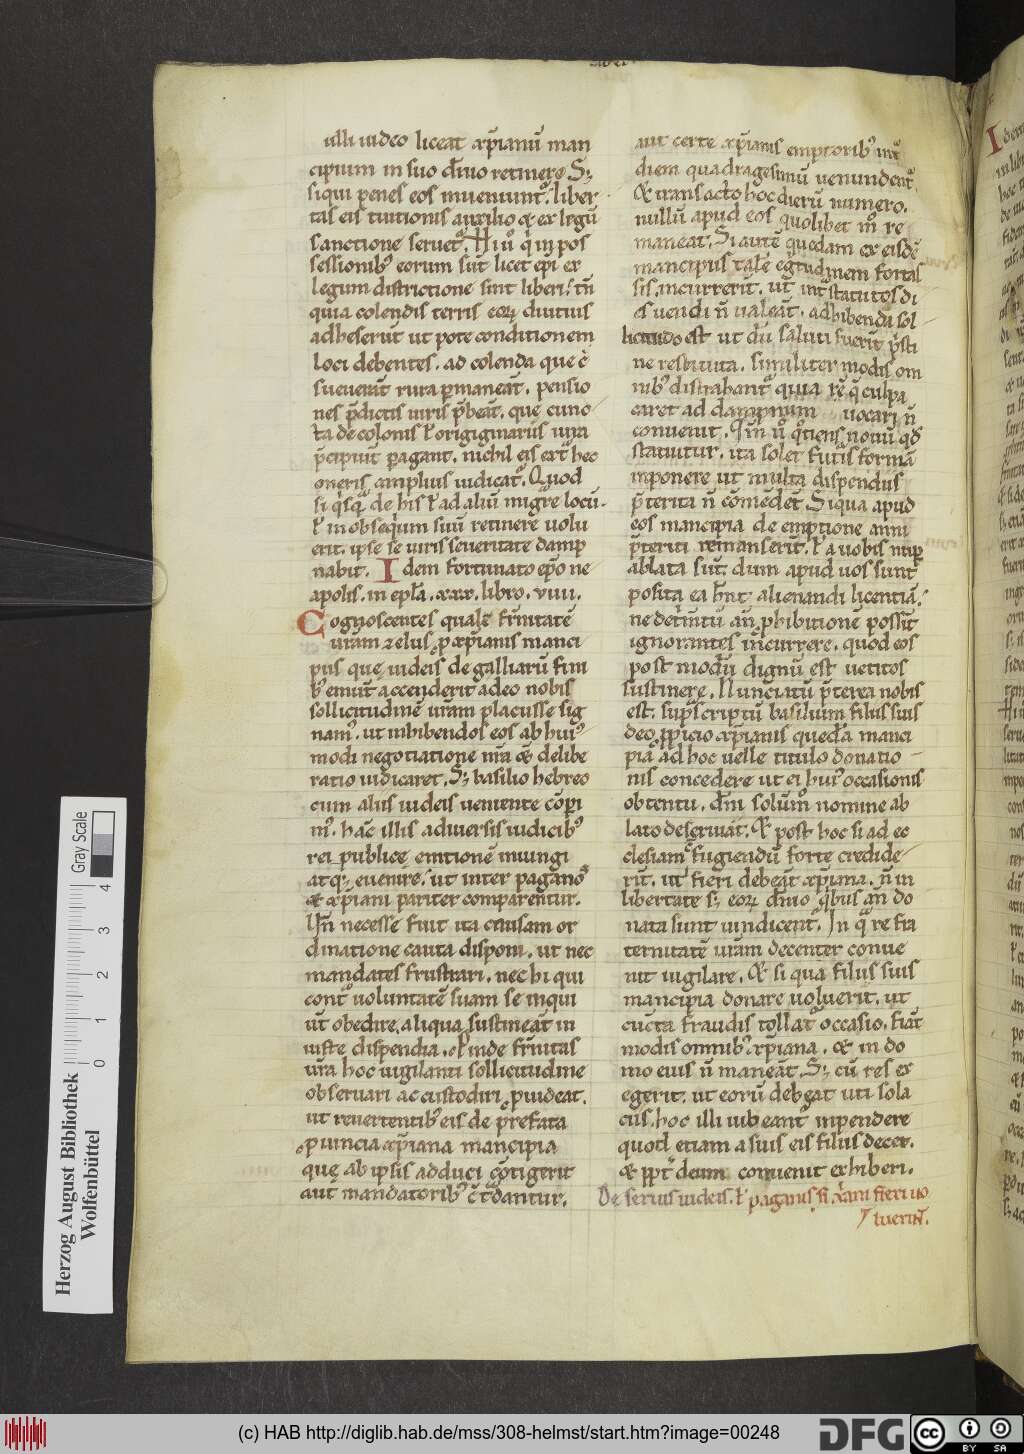 Liber
ulli iudeo liceat xp̄ianū man
cipium in suo dn̄io retinere. S;
si qui penes eos inueniunt᷑, liber
tas eis tuitionis auxilio & ex legū
sanctione seruet᷑. Hi u̇ qͥ in pos
sessionibꝰ eorum sūt licet ep̄i ex
legum districtione sint liberi, tn̄
quia colendis terris eoꝝ diutius
adheserūt ut pote conditionem
loci debentes, ad colenda que c̄
sueuerāt rura ꝑmaneāt, pensio
nes p̄dictis uiris p̄beāt, que cunc
ta de colonis ł origiginariis iura
p̄cipiūt ꝑagant, nichil eis ext᷑ hec
oneris amplius iudicat᷑. Quod
si qͥsqͣ de his ł ad aliū migͬre locū.
ł in obseqͥum suū retinere uolu
erit, ipse se iuris seueritate damp
nabit. Idem fortunato ep̄o ne
apolis. in epl̄a. xxx. libro. viiii.
Cognoscentes qualē fr̄nitatē
uram zelus ꝓ xp̄ianis manci
piis que iudeis de galliarū fini
bꝰ emūt accenderit adeo nobis
sollicitudinē urām placuisse sig
namꝰ, ut inhibendos eos ab huiꝰ
modi negotiatione nr̄a & delibe
ratio iudicaret. S; basilio hebreo
cum aliis iudeis ueniente cōp̄i
mꝰ, hāc illis a diuersis iudicibꝰ
rei publice emtionē iniungi
atq; euenire, ut inter paganos
& xp̄iani pariter compararentur.
Un̄ necesse fuit ita causam or
dinatione cauta disponi, ut nec
mandātes frustrari, nec hi qui
contͣ uoluntatē suam se inqui
ūt obedire, aliqua sustineāt in
iuste dispendia, ꝓinde fr̄nitas
ur̄a hoc uigilanti sollicitudine
obseruari ac custodiri ꝓuideat,
ut reuertentibꝰ eis de p̄refata
ꝓuincia xp̄iana mancipia
que ab ipsis adduci cōtigerit
aut mandatoribꝰ c̄t᷑dantur,
aut certe xp̄ianis emptoribꝰ intͣ
diem quadragesimū uenundent᷑,
& transacto hoc dierū numero,
nullū apud eos quolibet m̊ re
maneat. Si autē quedam ex eisdē
mancipiis talē egͥtudinem fortas
sis incurrerīt, ut intͣ statutos di
es uendi n̄ ualeāt, adhibenda sol
licitudo est ut dū saluti fuerīt pͥsti
ne restituta, similiter modis om
nibꝰ distrahantᷣ quia rē q̄ culpa
caret ad dampnum uocari n̄
conuenit. Qm̄ u̇ qͦtiens nouū qd̄
statuitur, ita solet futuris formā
inponere ut multa dispendiis
p̄terita n̄ cōmēdet. Siqua apud
eos mancipia de emptione anni
p̄teriti remanserīt, ł a uobis nuꝑ
ablata sūt, dum apud uos sunt
posita ea hn̄t alienandi licentiā,
ne det͛mtū an̄ ꝓhibitionē possīt
ignorantes incurrere, quod eos
post modū dignū est uetitos
sustinere. Nunciatū p̄terea nobis
est, sup̄scriptū basilium filiis suis
deo ꝓpicio xp̄ianis quedā manci
pia ad hoc uelle titulo donatio
nis concedere ut ei huiꝰ occasionis
obtentu, dn̄i solūm̊ nomine ab
lato deseruiāt. & post hoc si ad ec
clesiam fugiendū forte credide
rīt, ut fieri debeāt xp̄iana, n̄ in
libertate s; eoꝝ dn̄io qͥbus an̄ do
nata sunt uindicent᷑. In qͣ re fra
ternitatē urām decenter conue
nit uigilare. & si qua filiis suis
mancipia donare uoluerit, ut
cūcta fraudis tollat᷑ occasio, fiāt
modis omnibꝰ xp̄iana, & in do
mo eius n̄ maneāt. S; cū res ex
egerit, ut eorū debeat uti sola
ciis, hoc illi iubeant᷑ inpendere
quod etiam a suis eis filiis decet,
& ꝓpt͛ deum conuenit exhiberi.
De seruis iudeis. ł paganis si xp̄iani fieri uo
luerint.
Herzog August Bibliothek
Wolfenbüttel
Gray Scale
0 1 2 3 4
(c) HAB http://diglib.hab.de/mss/308-helmst/start.htm?image=00248
DFG
cc BY SA